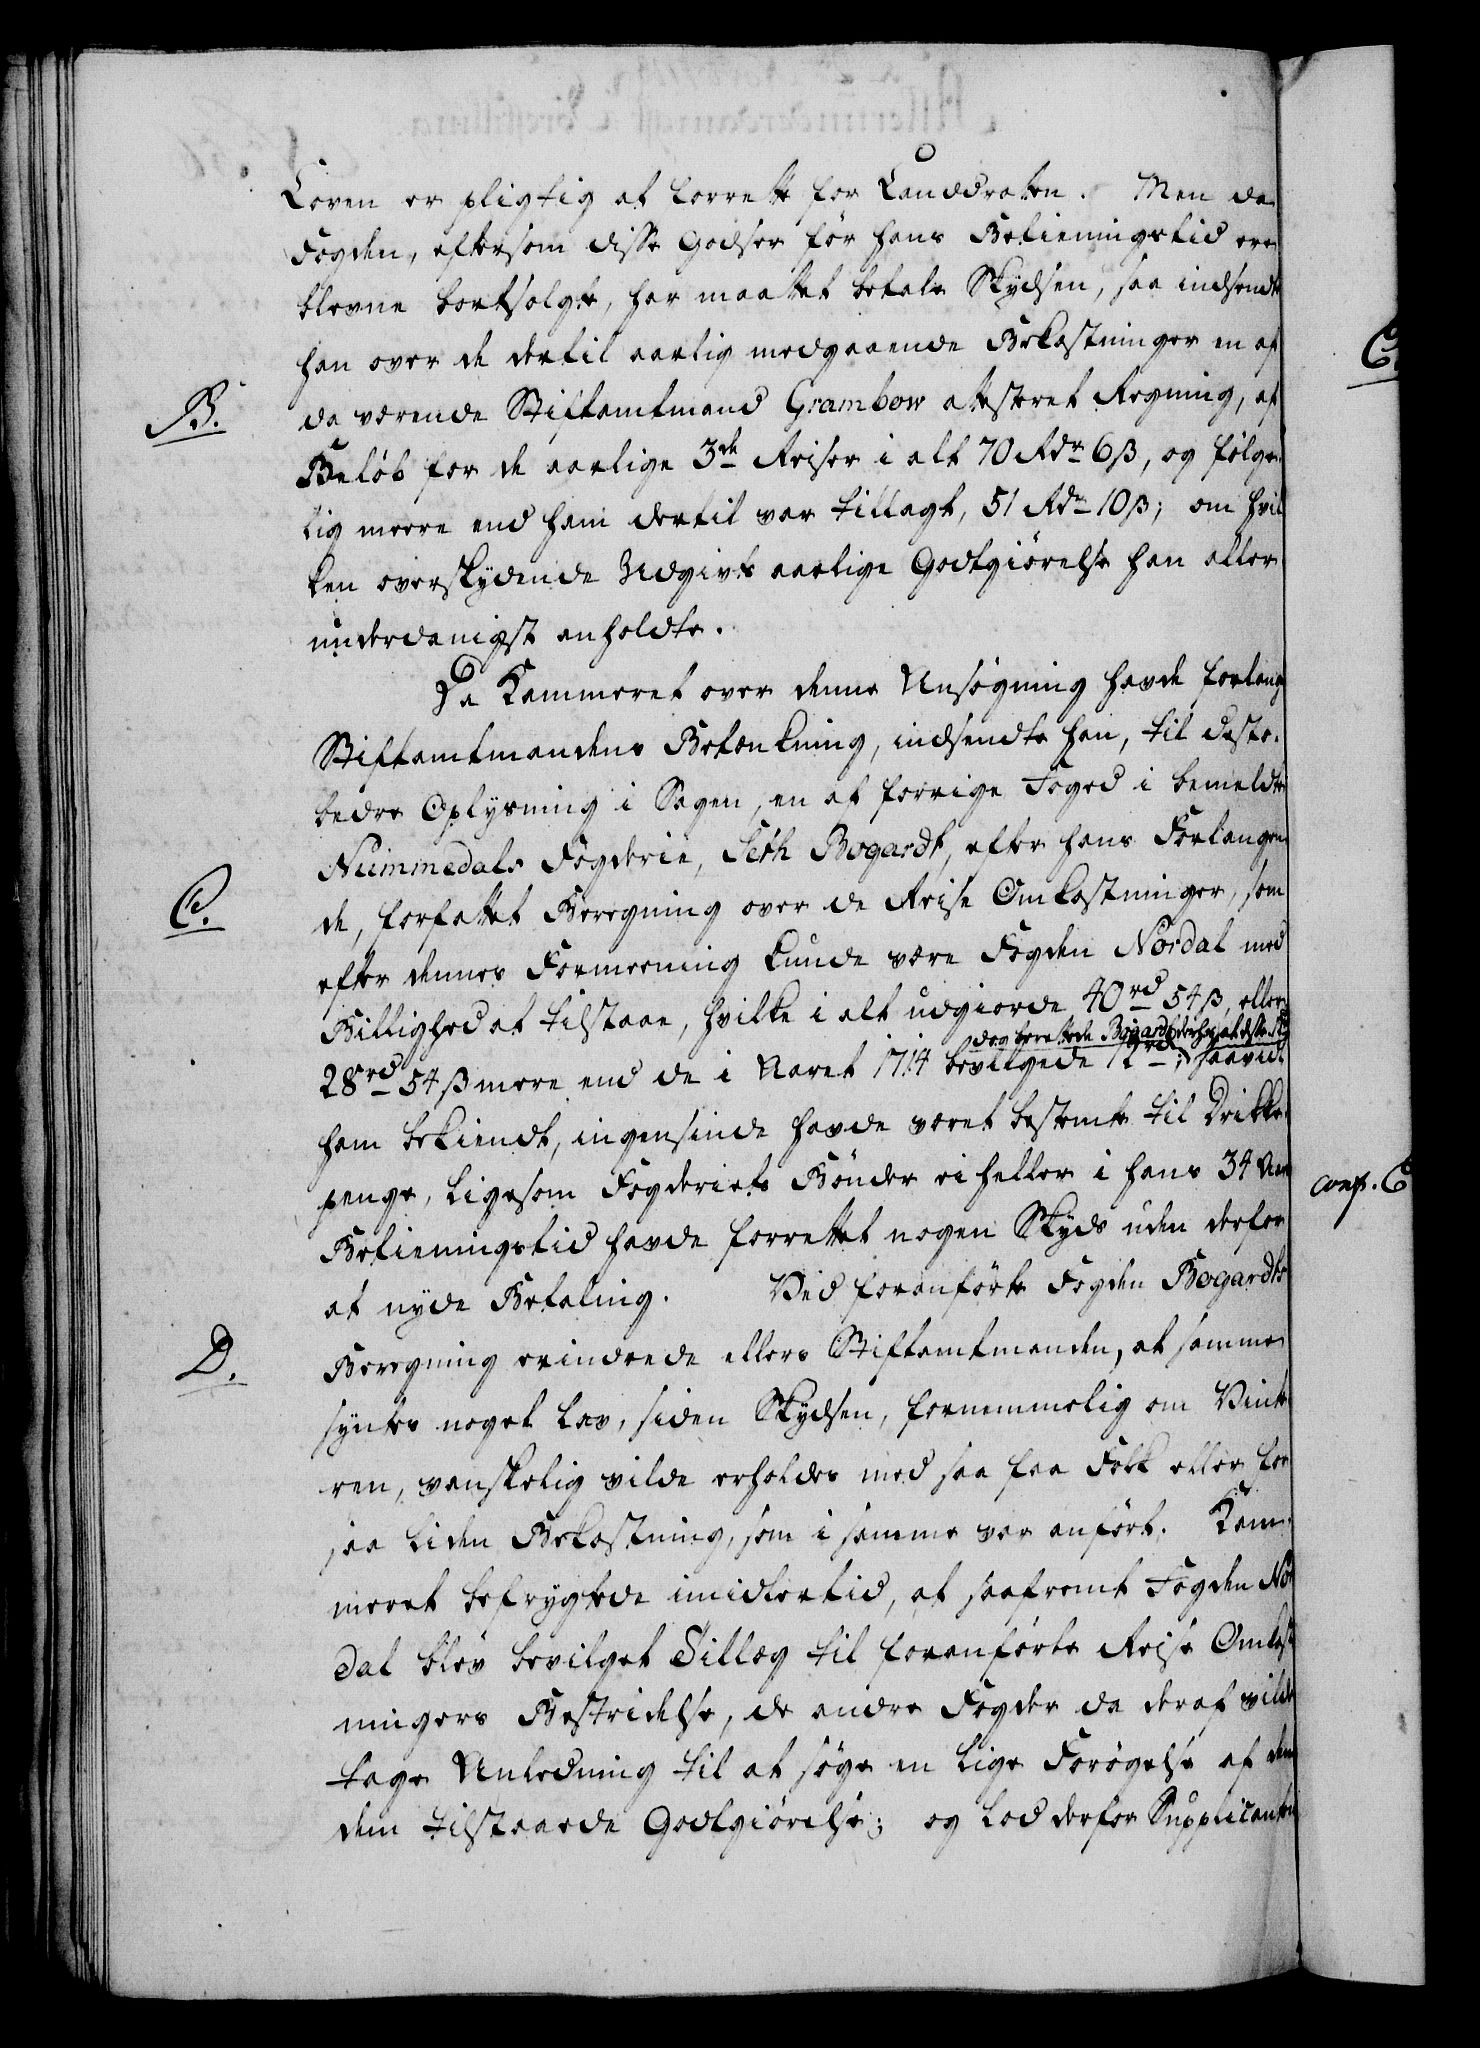 Loven er pligtig at forrette for Landdrotten. Men da
Fogden, eftersom disse Godser før hans Betieningstid ere
blevne bortsolgte, har maattet betale Skydsen, saa indsendte
han over de dertil aarlig medgaaende Bekostninger en af
B.
da værende Stiftamtmand Grambow attesteret Regning, af
Beløb for de aarlige 3de Reiser i alt 70 Rdr 6ß, og følge-
lig meere end ham dertil var tillagt, 51 Rdr 10ß; om hvil
ken overskydende Udgivts aarlige Godtgiørelse han aller
underdanigst anholdte.
Da Kammeret over denne Ansøgning havde forlangt
Stiftamtmandens Betænkning, indsendte han, til deste-
bedre Oplysning i Sagen, en af forrige Foged i bemeldte
Nummedals Fogderie, Seth Bogardt, efter hans Forlangen
C.
de, forfattet Beregning over de Reise Omkostninger, som
efter dennes Formeening kunde være Fogden Nordal med
Billighed at tilstaae, hvilke i alt udgiorde 40rd 54ß, eller
dog berettede Bogardt derhos, at dette
28rd 54ß mere end de i Aaret 1714 bevilgede 12rd; saavidt
ham bekiendt, ingensinde havde været bestemte til Drikke-
penge, ligesom Fogderiets Bønder ei heller i hans 34 Aars
conf. C
Betieningstid havde forrettet nogen Skyds uden derfor
at nyde Betaling. Ved foranførte Fogden Bogardts
D.
Beregning erindrede ellers Stiftamtmanden, at samme
syntes noget lav, siden Skydsen, fornemmelig om Vinte
ren, vanskelig vilde erholdes med saa faa Folk eller for
saa liden Bekostning, som i samme var anført. Kam-
meret befrygtede imidlertid, at saafremt Fogden Nor
dal blev bevilget Tillæg til foranførte Reise Omkost
ningers Bestridelse, de andre Fogder da deraf vilde
tage Anledning til at søge en lige Forøgelse af den
dem tilstaaede Godtgiørelse; og lod derfor Supplicanten